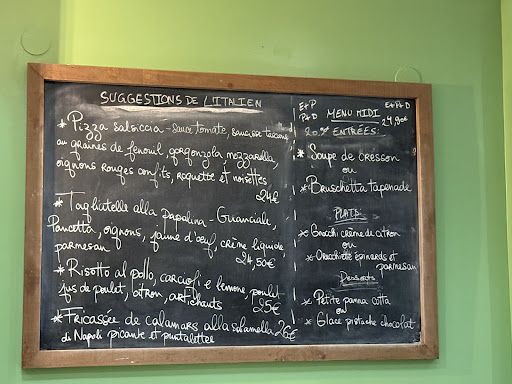 SUGGESTIONS DE L'ITALIEN
* Pizza salsiccia - sauce tomate, saucisse toscane
au graines de fenouil, gorgonzola, mozzarella,
oignons rouges confits, roquette et noisettes
24€
* Tagliatelle alla Papalina - Guanciale,
Pancetta, oignons, jaune d'œuf, crème liquide,
parmesan
24,50€
* Risotto al pollo, carciofi e lemone, poulet
jus de poulet, citron, artichauts
25€
* Fricassée de calamars alla salamella 26€
di Napoli picante et puntalette
E+P
P+D
MENU MIDI
E+P+D
24,90€
ENTRÉES:
* Soupe de cresson
ou
* Bruschetta tapenade
PLATS
* Gnocchi crème de citron
ou
* Orecchiette épinards et
parmesan
Desserts
* Petite panna cotta
ou
* Glace pistache chocolat